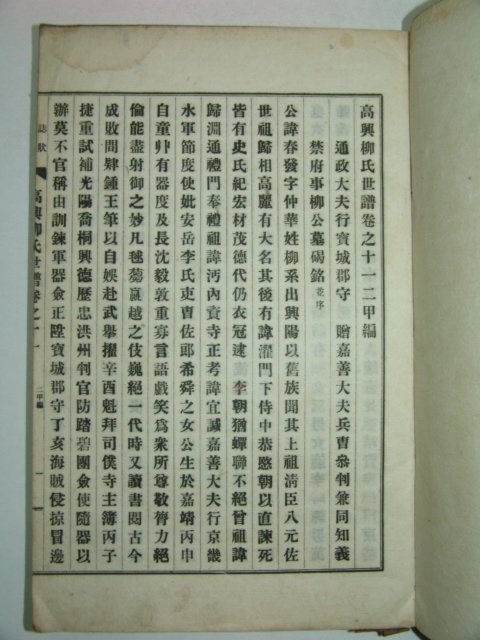 高興柳氏世譜卷之十一二甲編
通政大夫行寶城郡守　贈嘉善大夫兵曹參判兼同知義
禁府事柳公墓碣銘 並序
公諱春發字仲華姓柳系出興陽以舊族聞其上祖淸臣八元佐
世祖歸相高麗有大名其後有諱濯門下侍中恭愍朝以直諫死
皆有史氏紀宏材茂德代仍衣冠逮　李朝猶蟬聯不絕曾祖諱
歸淵通禮門奉禮祖諱汚內資寺正考諱宜諴嘉善大夫行京畿
水軍節度使妣安岳李氏吏曹佐郞希舜之女公生於嘉靖丙申
自童丱有器度及長沈毅敦重寡言語戲笑爲衆所尊敬膂力絕
倫能盡射御之妙凡毬 越之伎巍絕一代時又讀書閱古今
成敗間肄鍾王筆以自娛赴武擧擢辛酉魁拜司僕寺主簿丙子
捷重試補光陽喬桐興德歷忠洪州判官防踏碧團僉使隨器以
辦莫不官稱由訓鍊軍器僉正陞寶城郡守丁亥海賊侵掠冒邊
誌狀
高興柳氏世譜卷之十一
二甲編
一